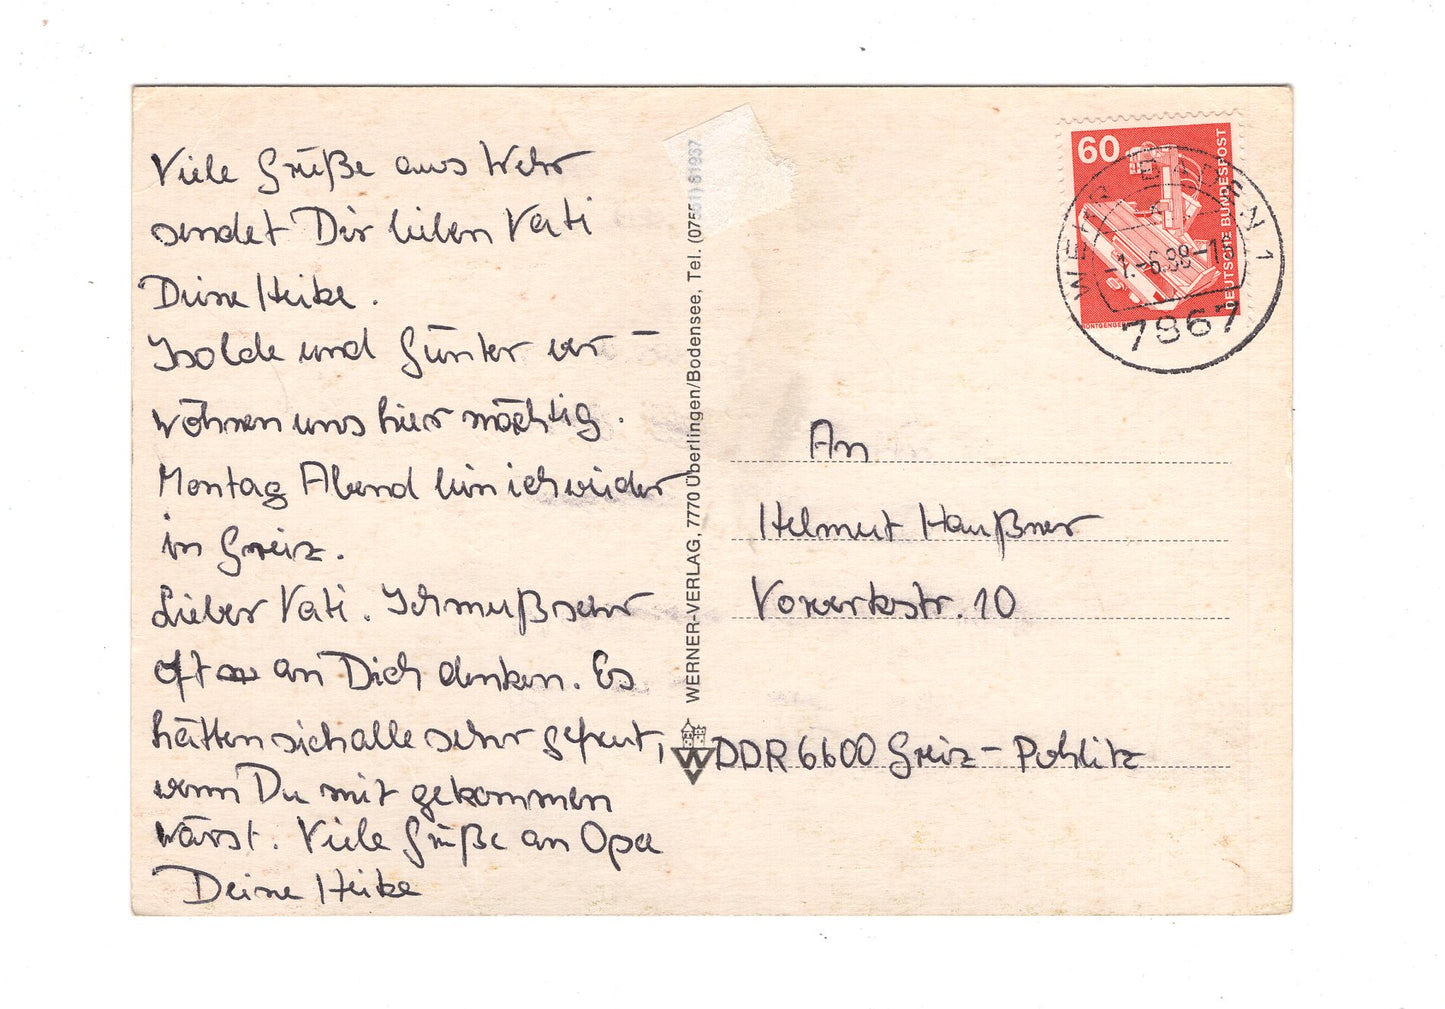 Viele Grüße aus Wehr
sendet Dir lieben Vati
Deine Heike.
Isolde und Günter ver-
wöhnen uns hier mächtig.
Montag Abend bin ich wieder
in Greiz.
Lieber Vati. Ich muß sehr
oft an Dich denken. Es
hätten sich alle sehr gefreut,
wenn Du mit gekommen
wärst. Viele Grüße an Opa
Deine Heike
WERNER-VERLAG, 7770 Überlingen/Bodensee, Tel. (07551) 61937
60
DEUTSCHE BUNDESPOST
WEHR, BADEN 1
-1.-6.88-16
7867
An
Helmut Haußner
Vorwerkstr. 10
DDR 6600 Greiz-Pohlitz